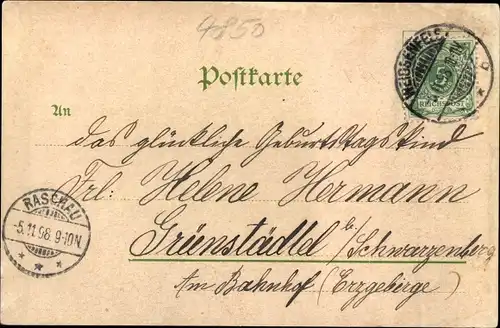 4850
Postkarte
WEISSENFELS
REICHSPOST
An
das glückliche Geburtstagskind
Frl. Helene Hermann
RASCHAU
-5.11.98.9-10N.
Grünstädtel b/Schwarzenberg
Am Bahnhof (Erzgebirge)